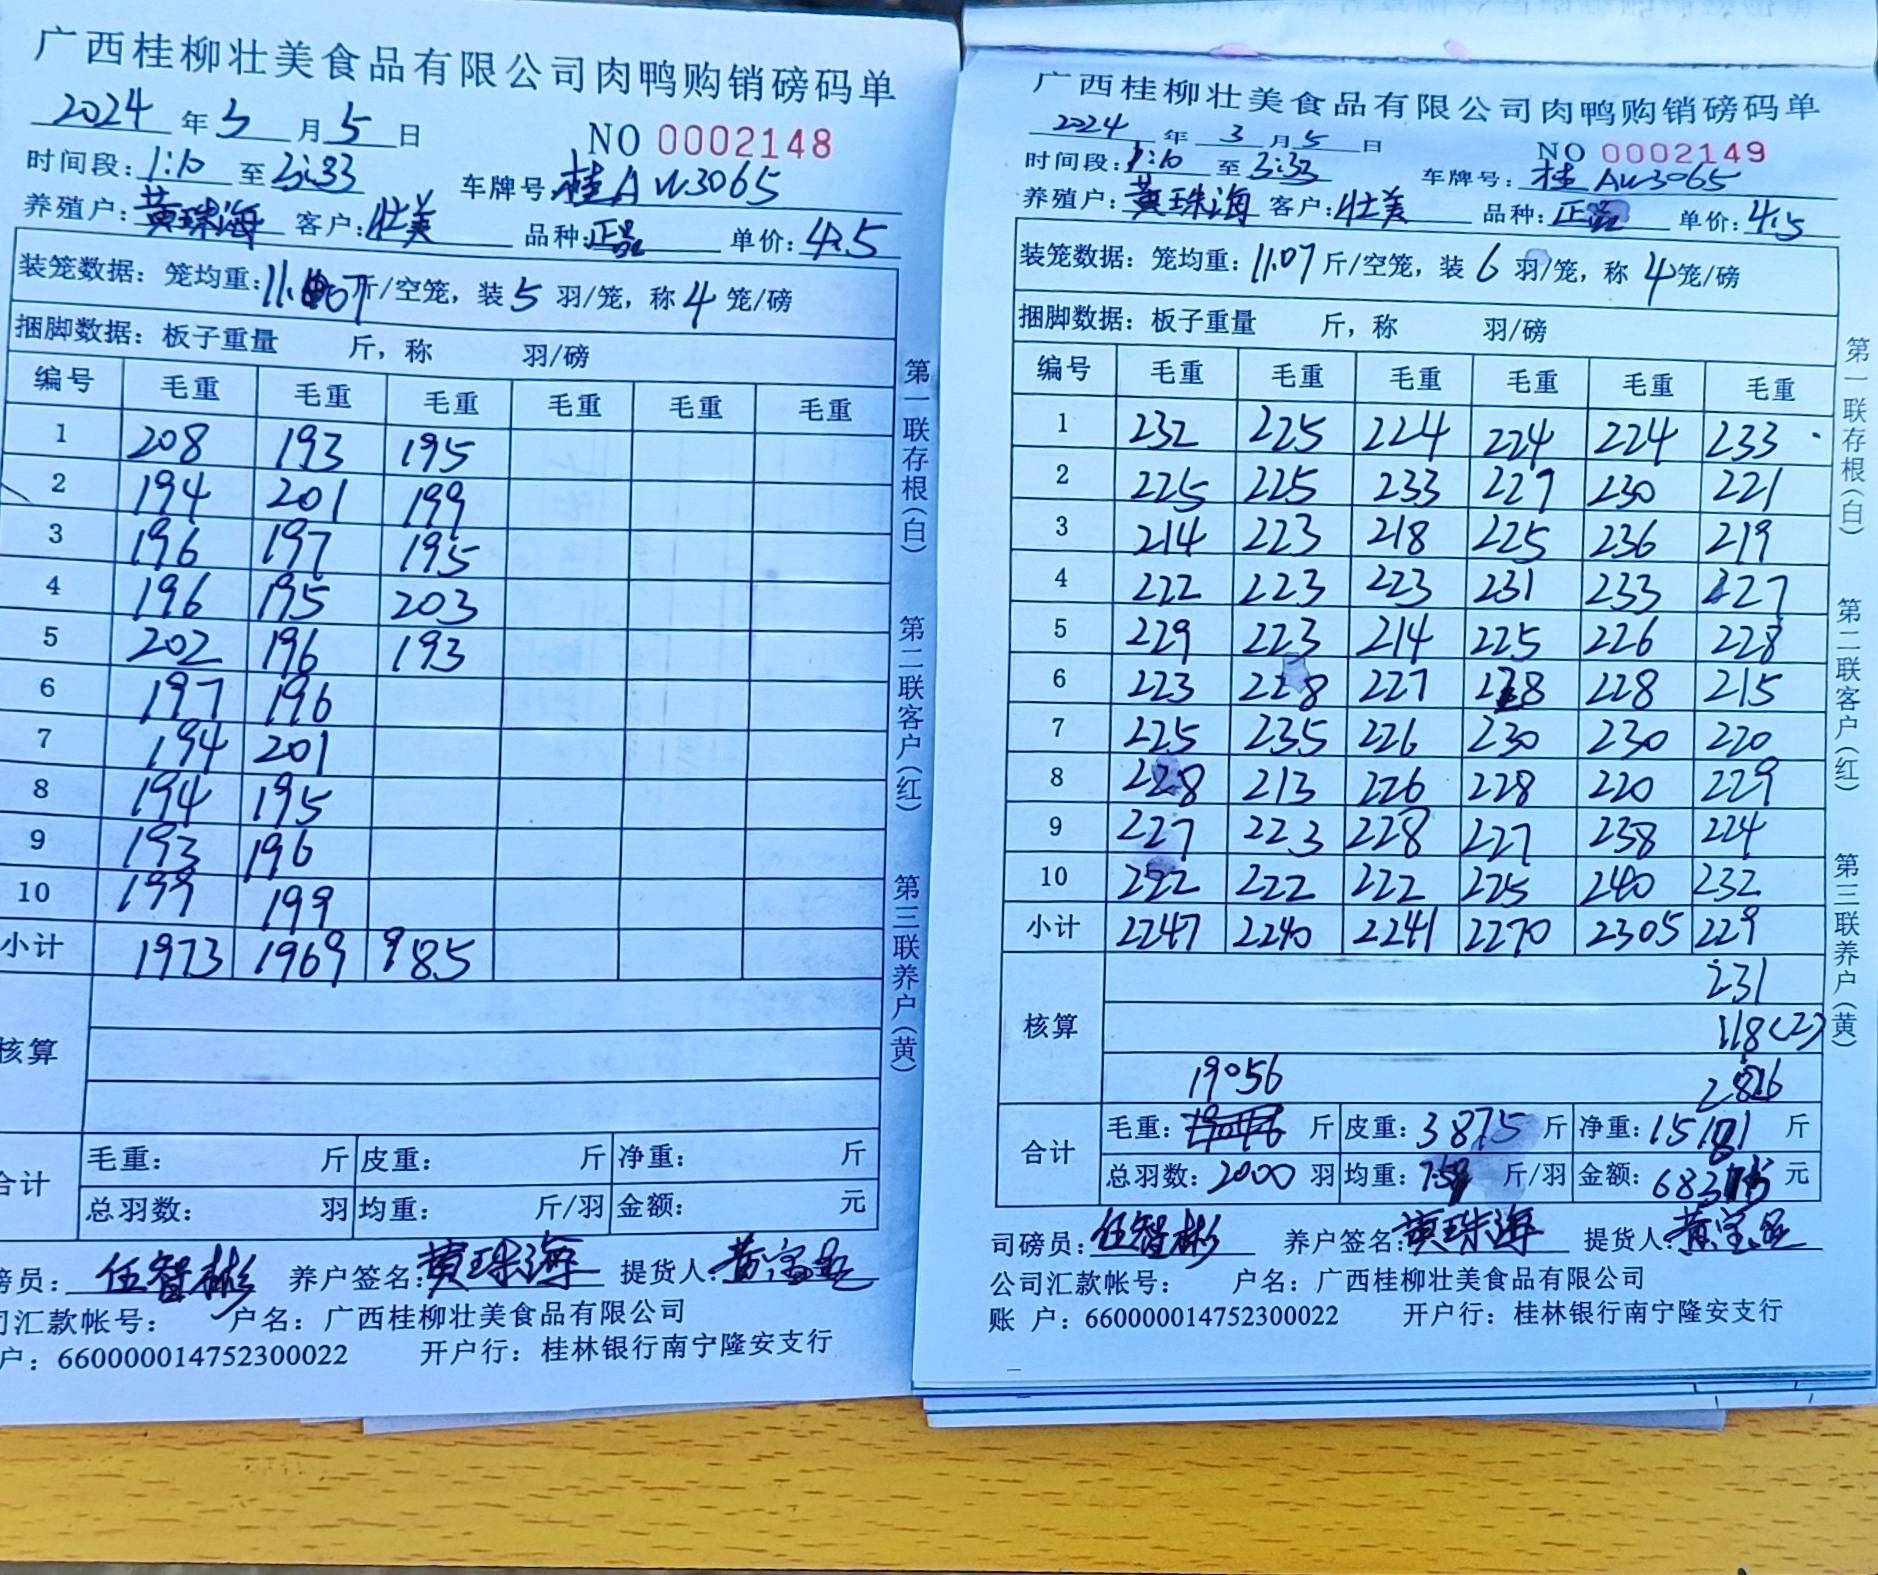 广西桂柳壮美食品有限公司肉鸭购销磅码单
2024 年 3 月 5 日
NO 0002148
时间段: 1:10 至 3:33 车牌号: 桂AW3065
养殖户: 黄珠海 客户: 壮美 品种: 正品 单价: 4.5
装笼数据: 笼均重: 11.07 斤/空笼, 装 5 羽/笼, 称 4 笼/磅
捆脚数据: 板子重量 斤, 称 羽/磅
编号 毛重 毛重 毛重 毛重 毛重 毛重
1 208 193 195
2 194 201 199
3 196 197 195
4 196 195 203
5 202 196 193
6 197 196
7 194 201
8 194 195
9 193 196
10 199 199
小计 1973 1969 985
核算
合计 毛重: 斤 皮重: 斤 净重: 斤
总羽数: 羽 均重: 斤/羽 金额: 元
磅员: 伍智彬 养户签名: 黄珠海 提货人: 黄
司汇款帐号: 户名: 广西桂柳壮美食品有限公司
户: 660000014752300022 开户行: 桂林银行南宁隆安支行
第一联存根(白)
第二联客户(红)
第三联养户(黄)
广西桂柳壮美食品有限公司肉鸭购销磅码单
2024 年 3 月 5 日
NO 0002149
时间段: 1:10 至 3:33 车牌号: 桂AW3065
养殖户: 黄珠海 客户: 壮美 品种: 正品 单价: 4.5
装笼数据: 笼均重: 11.07 斤/空笼, 装 6 羽/笼, 称 4 笼/磅
捆脚数据: 板子重量 斤, 称 羽/磅
编号 毛重 毛重 毛重 毛重 毛重 毛重
1 232 225 224 224 224 233
2 225 225 233 227 230 221
3 214 223 218 225 236 219
4 222 223 223 231 233 227
5 229 223 214 225 226 228
6 223 228 227 228 228 215
7 225 235 226 230 230 220
8 228 213 226 228 220 229
9 227 223 228 227 238 224
10 222 222 222 225 240 232
小计 2247 2240 2241 2270 2305 229
231
核算 118(2)
19056 2826
合计 毛重: 斤 皮重: 3875 斤 净重: 15181 斤
总羽数: 2000 羽 均重: 7.59 斤/羽 金额: 元
司磅员: 伍智彬 养户签名: 黄珠海 提货人: 黄
公司汇款帐号: 户名: 广西桂柳壮美食品有限公司
账 户: 660000014752300022 开户行: 桂林银行南宁隆安支行
第一联存根(白)
第二联客户(红)
第三联养户(黄)